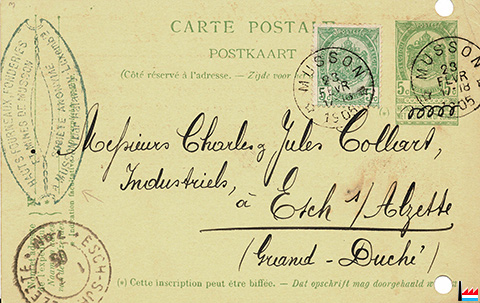 CARTE POSTALE
POSTKAART
(Côté réservé à l'adresse. – Zijde voor
MUSSON
23
FEVR
17-18
1905
MUSSON
23
FEVR
17-18
1905
5c
HAUTS FOURNEAUX, FONDERIES
& MINES DE MUSSON
SOCIÉTÉ ANONYME
Messieurs Charles & Jules Collart,
Industriels,
à Esch s/Alzette
(Grand-Duché)
ESCH-SUR-
(*) Cette inscription peut être biffée. – Dat opschrift mag doorgehaald w